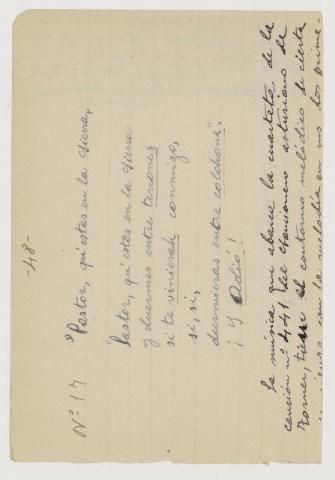 -48-
Nº 17 "Pastor, qu'estás en la sierra,
Pastor, qu'estás en la sierra
y duermes entre terrones,
si te vinieras conmigo,
sí, sí,
durmieras entre colchons".
¡Y Adió!
La música que abarca la cuarteta de la
canción nº 441 del cancionero asturiano de
Torner, tiene el contorno melódico de cierta
con la melodía en sus dos prime-